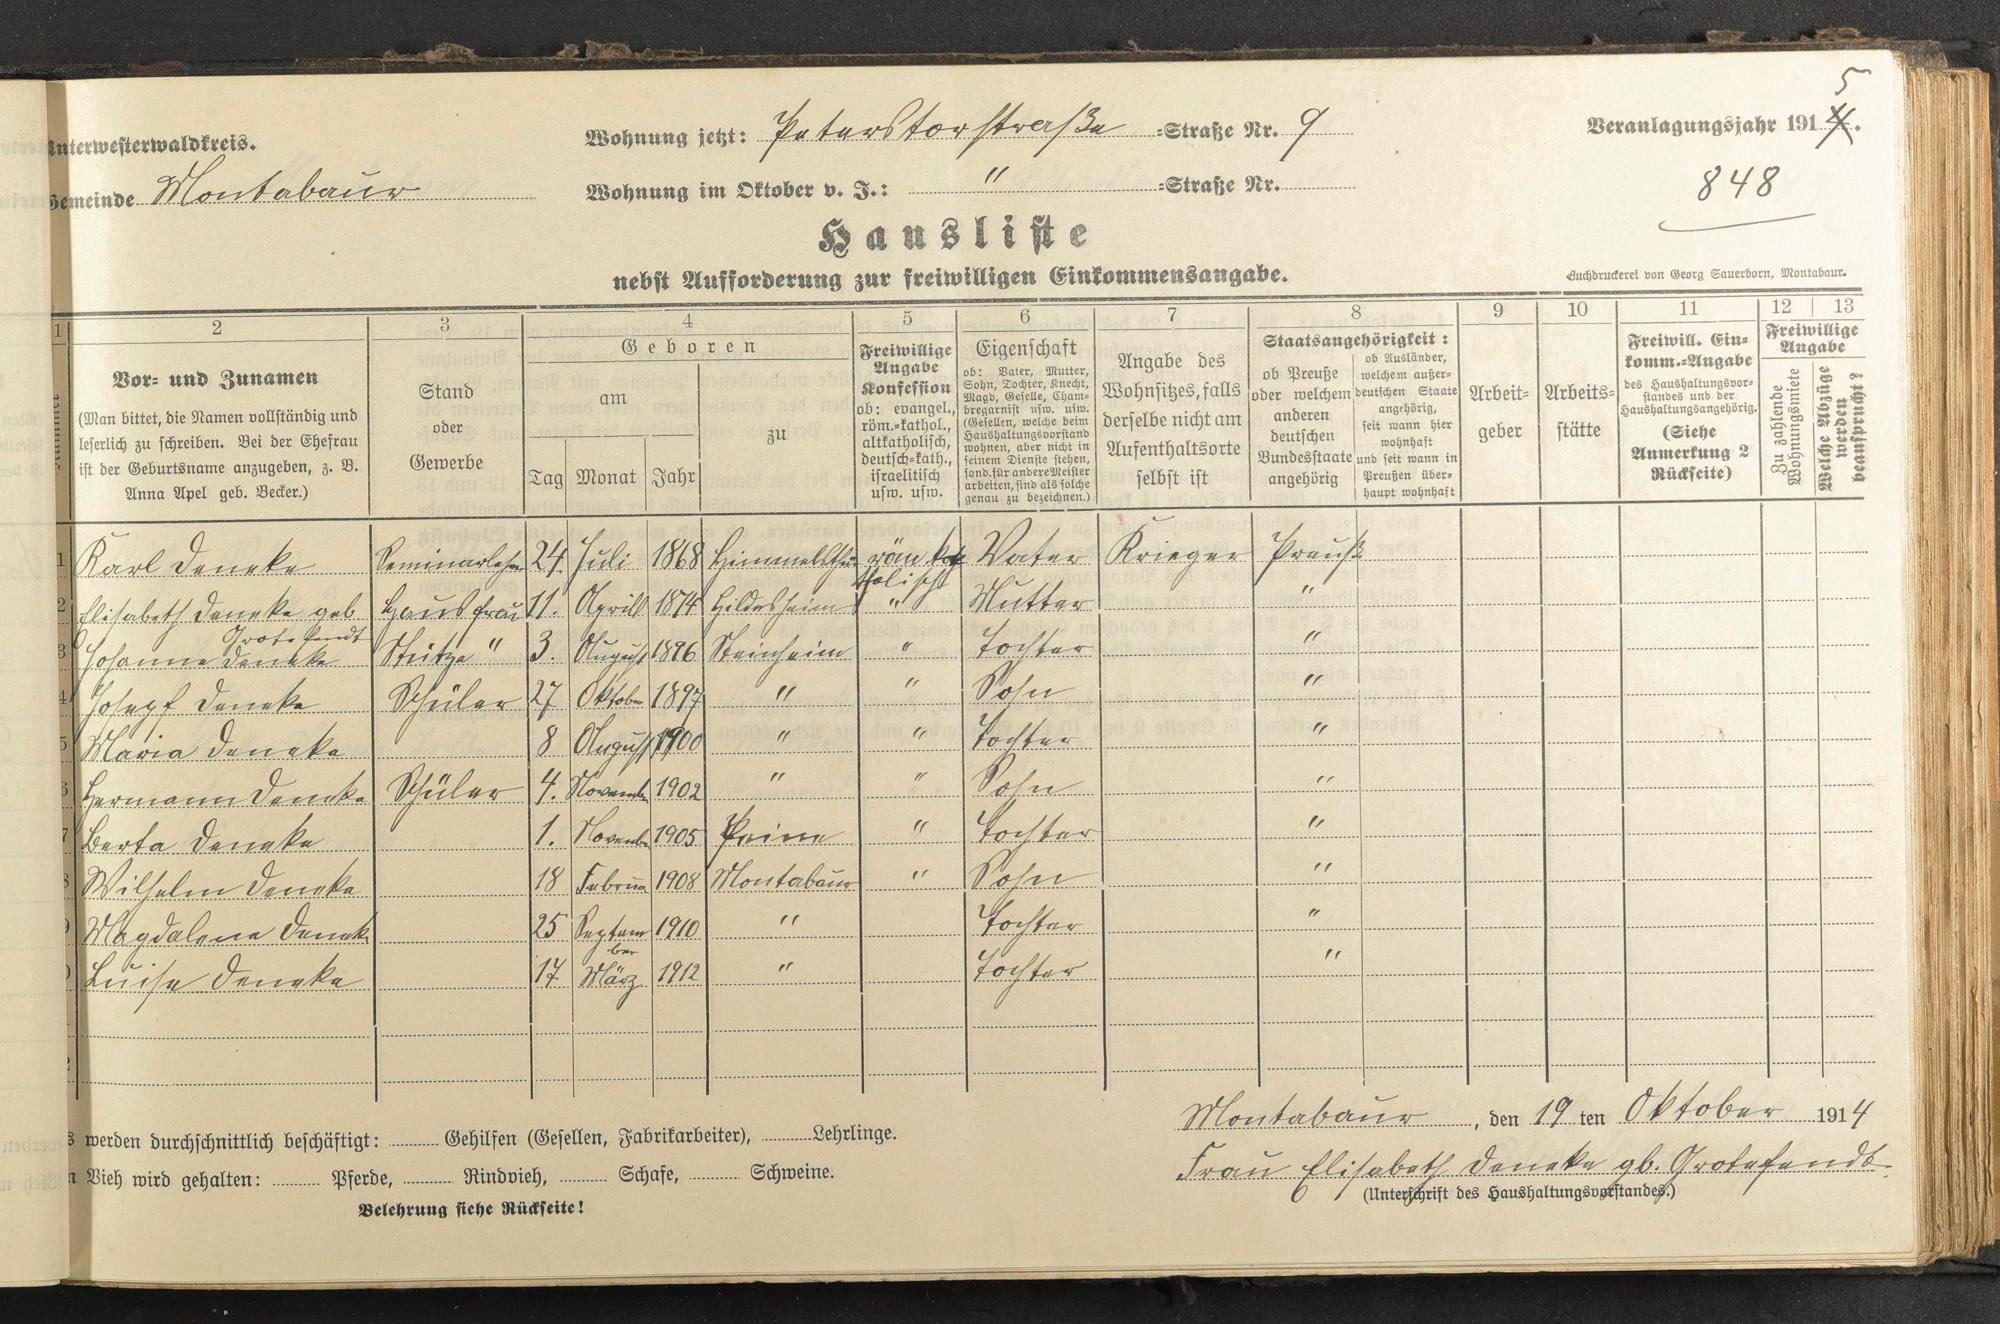 Unterwesterwaldkreis.
Gemeinde Montabaur
Wohnung jetzt: Peterstorstraße =Straße Nr. 9
Wohnung im Oktober v. J.: " =Straße Nr.
Veranlagungsjahr 1914. 5
848
Hausliste
nebst Aufforderung zur freiwilligen Einkommensangabe.
Buchdruckerei von Georg Sauerborn, Montabaur.
1 2 3 4 5 6 7 8 9 10 11 12 13
Nummer
Vor= und Zunamen
(Man bittet, die Namen vollständig und
leserlich zu schreiben. Bei der Ehefrau
ist der Geburtsname anzugeben, z. B.
Anna Apel geb. Becker.)
Stand
oder
Gewerbe
Geboren
am
Tag Monat Jahr
zu
Freiwillige
Angabe
Konfession
ob: evangel.,
röm.=kathol.,
altkatholisch,
deutsch=kath.,
israelitisch
usw. usw.
Eigenschaft
ob: Vater, Mutter,
Sohn, Tochter, Knecht,
Magd, Geselle, Cham=
bregarnist usw. usw.
(Gesellen, welche beim
Haushaltungsvorstand
wohnen, aber nicht in
seinem Dienste stehen,
sond. für andere Meister
arbeiten, sind als solche
genau zu bezeichnen.)
Angabe des
Wohnsitzes, falls
derselbe nicht am
Aufenthaltsorte
selbst ist
Staatsangehörigkeit:
ob Preuße
oder welchem
anderen
deutschen
Bundesstaate
angehörig
ob Ausländer,
welchem außer=
deutschen Staate
angehörig,
seit wann hier
wohnhaft
und seit wann in
Preußen über=
haupt wohnhaft
Arbeit=
geber
Arbeits=
stätte
Freiwill. Ein=
komm.=Angabe
des Haushaltungsvor=
standes und der
Haushaltungsangehörig.
(Siehe
Anmerkung 2
Rückseite)
Freiwillige
Angabe
Zu zahlende
Wohnungsmiete
Welche Abzüge
werden
beansprucht?
1 Karl Deneke Seminarlehr 24. Juli 1868 Himmelsthür röm kath Vater Krieger Preuß
tholisch
2 Elisabeth Deneke geb Hausfrau 11. April 1874 Hildesheim " Mutter "
Grotefendt
3 Johanne Deneke Stütze " 3. August 1896 Steinheim " Tochter "
4 Josepf Deneke Schüler 27 Oktober 1897 " " Sohn "
5 Maria Deneke 8 August 1900 " " Tochter "
6 Hermann Deneke Schüler 4. November 1902 " " Sohn "
7 Berta Deneke 1. November 1905 Peine " Tochter "
8 Wilhelm Deneke 18 Februar 1908 Montabaur " Sohn "
9 Magdalena Deneke 25 Septem 1910 " Tochter "
ber
0 Luise Deneke 17 März 1912 " Tochter "
2
s werden durchschnittlich beschäftigt: Gehilfen (Gesellen, Fabrikarbeiter), Lehrlinge.
n Vieh wird gehalten: Pferde, Rindvieh, Schafe, Schweine.
Belehrung siehe Rückseite!
Montabaur, den 19 ten Oktober 1914
Frau Elisabeth Deneke gb. Grotefendt.
(Unterschrift des Haushaltungsvorstandes.)